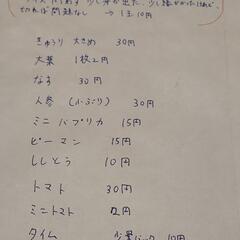 少し芽が出た、少し緑がかったけれど
切れば問題なし → 1玉10円
きゅうり 大きめ 30円
大葉 1枚2円
なす 30円
人参 (小ぶり) 30円
ミニパプリカ 15円
ピーマン 15円
ししとう 10円
トマト 30円
ミニトマト 2円
タイム 少量パック 10円